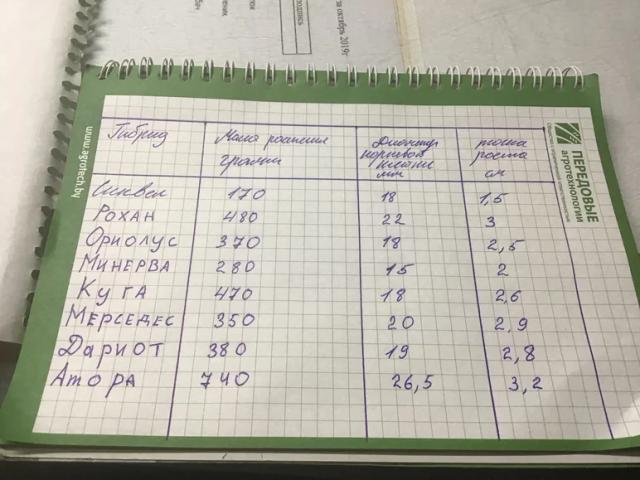 за октябрь 2019г
подпись
www.agrotech.by
ПЕРЕДОВЫЕ
агротехнологии
Гибрид Масса растения грамм Диаметр корневой шейки мм точка роста см
170 18 1,5
РОХАН 480 22 3
ОРИОЛУС 370 18 2,5
МИНЕРВА 280 15 2
КУГА 470 18 2,6
МЕРСЕДЕС 350 20 2,9
ДАРИОТ 380 19 2,8
Атора 740 26,5 3,2